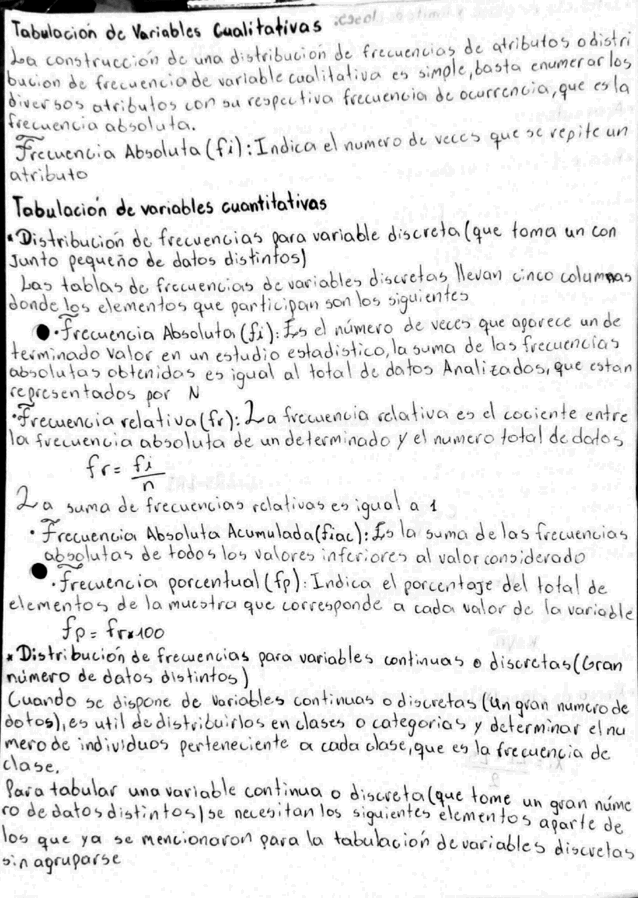 Tabulación de Variables Cualitativas
La construcción de una distribución de frecuencias de atributos o distri
bucion de frecuencia de variable cualitativa es simple, basta enumerar los
diversos atributos con su respectiva frecuencia de ocurrencia, que es la
frecuencia absoluta.
Frecuencia Absoluta (fi): Indica el numero de veces que se repite un
atributo
Tabulación de variables cuantitativas
• Distribución de frecuencias para variable discreta (que toma un con
Junto pequeño de datos distintos)
Las tablas de frecuencias de variables discretas llevan cinco columnas
donde los elementos que participan son los siguientes
• Frecuencia Absoluta (fi): Es el número de veces que aparece un de
terminado valor en un estudio estadistico, la suma de las frecuencias
absolutas obtenidas es igual al total de datos Analizados, que estan
representados por N
• Frecuencia relativa (fr): La frecuencia relativa es el cociente entre
la frecuencia absoluta de un determinado y el numero total de datos
fr = fi/n
La suma de frecuencias relativas es igual a 1
• Frecuencia Absoluta Acumulada (fiac): Es la suma de las frecuencias
absolutas de todos los valores inferiores al valor considerado
• Frecuencia porcentual (fp): Indica el porcentaje del total de
elementos de la muestra que corresponde a cada valor de la variable
fp = fr x 100
* Distribución de frecuencias para variables continuas o discretas (Gran
número de datos distintos)
Cuando se dispone de variables continuas o discretas (Un gran numero de
datos), es util de distribuirlos en clases o categorias y determinar el nu
mero de individuos perteneciente a cada clase, que es la frecuencia de
clase.
Para tabular una variable continua o discreta (que tome un gran núme
ro de datos distintos) se necesitan los siguientes elementos aparte de
los que ya se mencionaron para la tabulación de variables discretas
sin agruparse